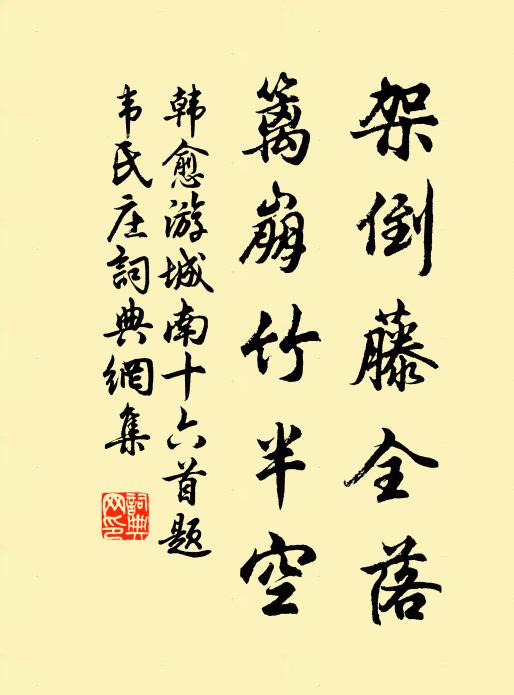 架倒藤全落
篱崩竹半空
韩愈游城南十六首题
韦氏庄詞典網集
詞典网印